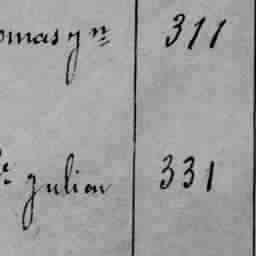 omas y n 311
e Julian 331